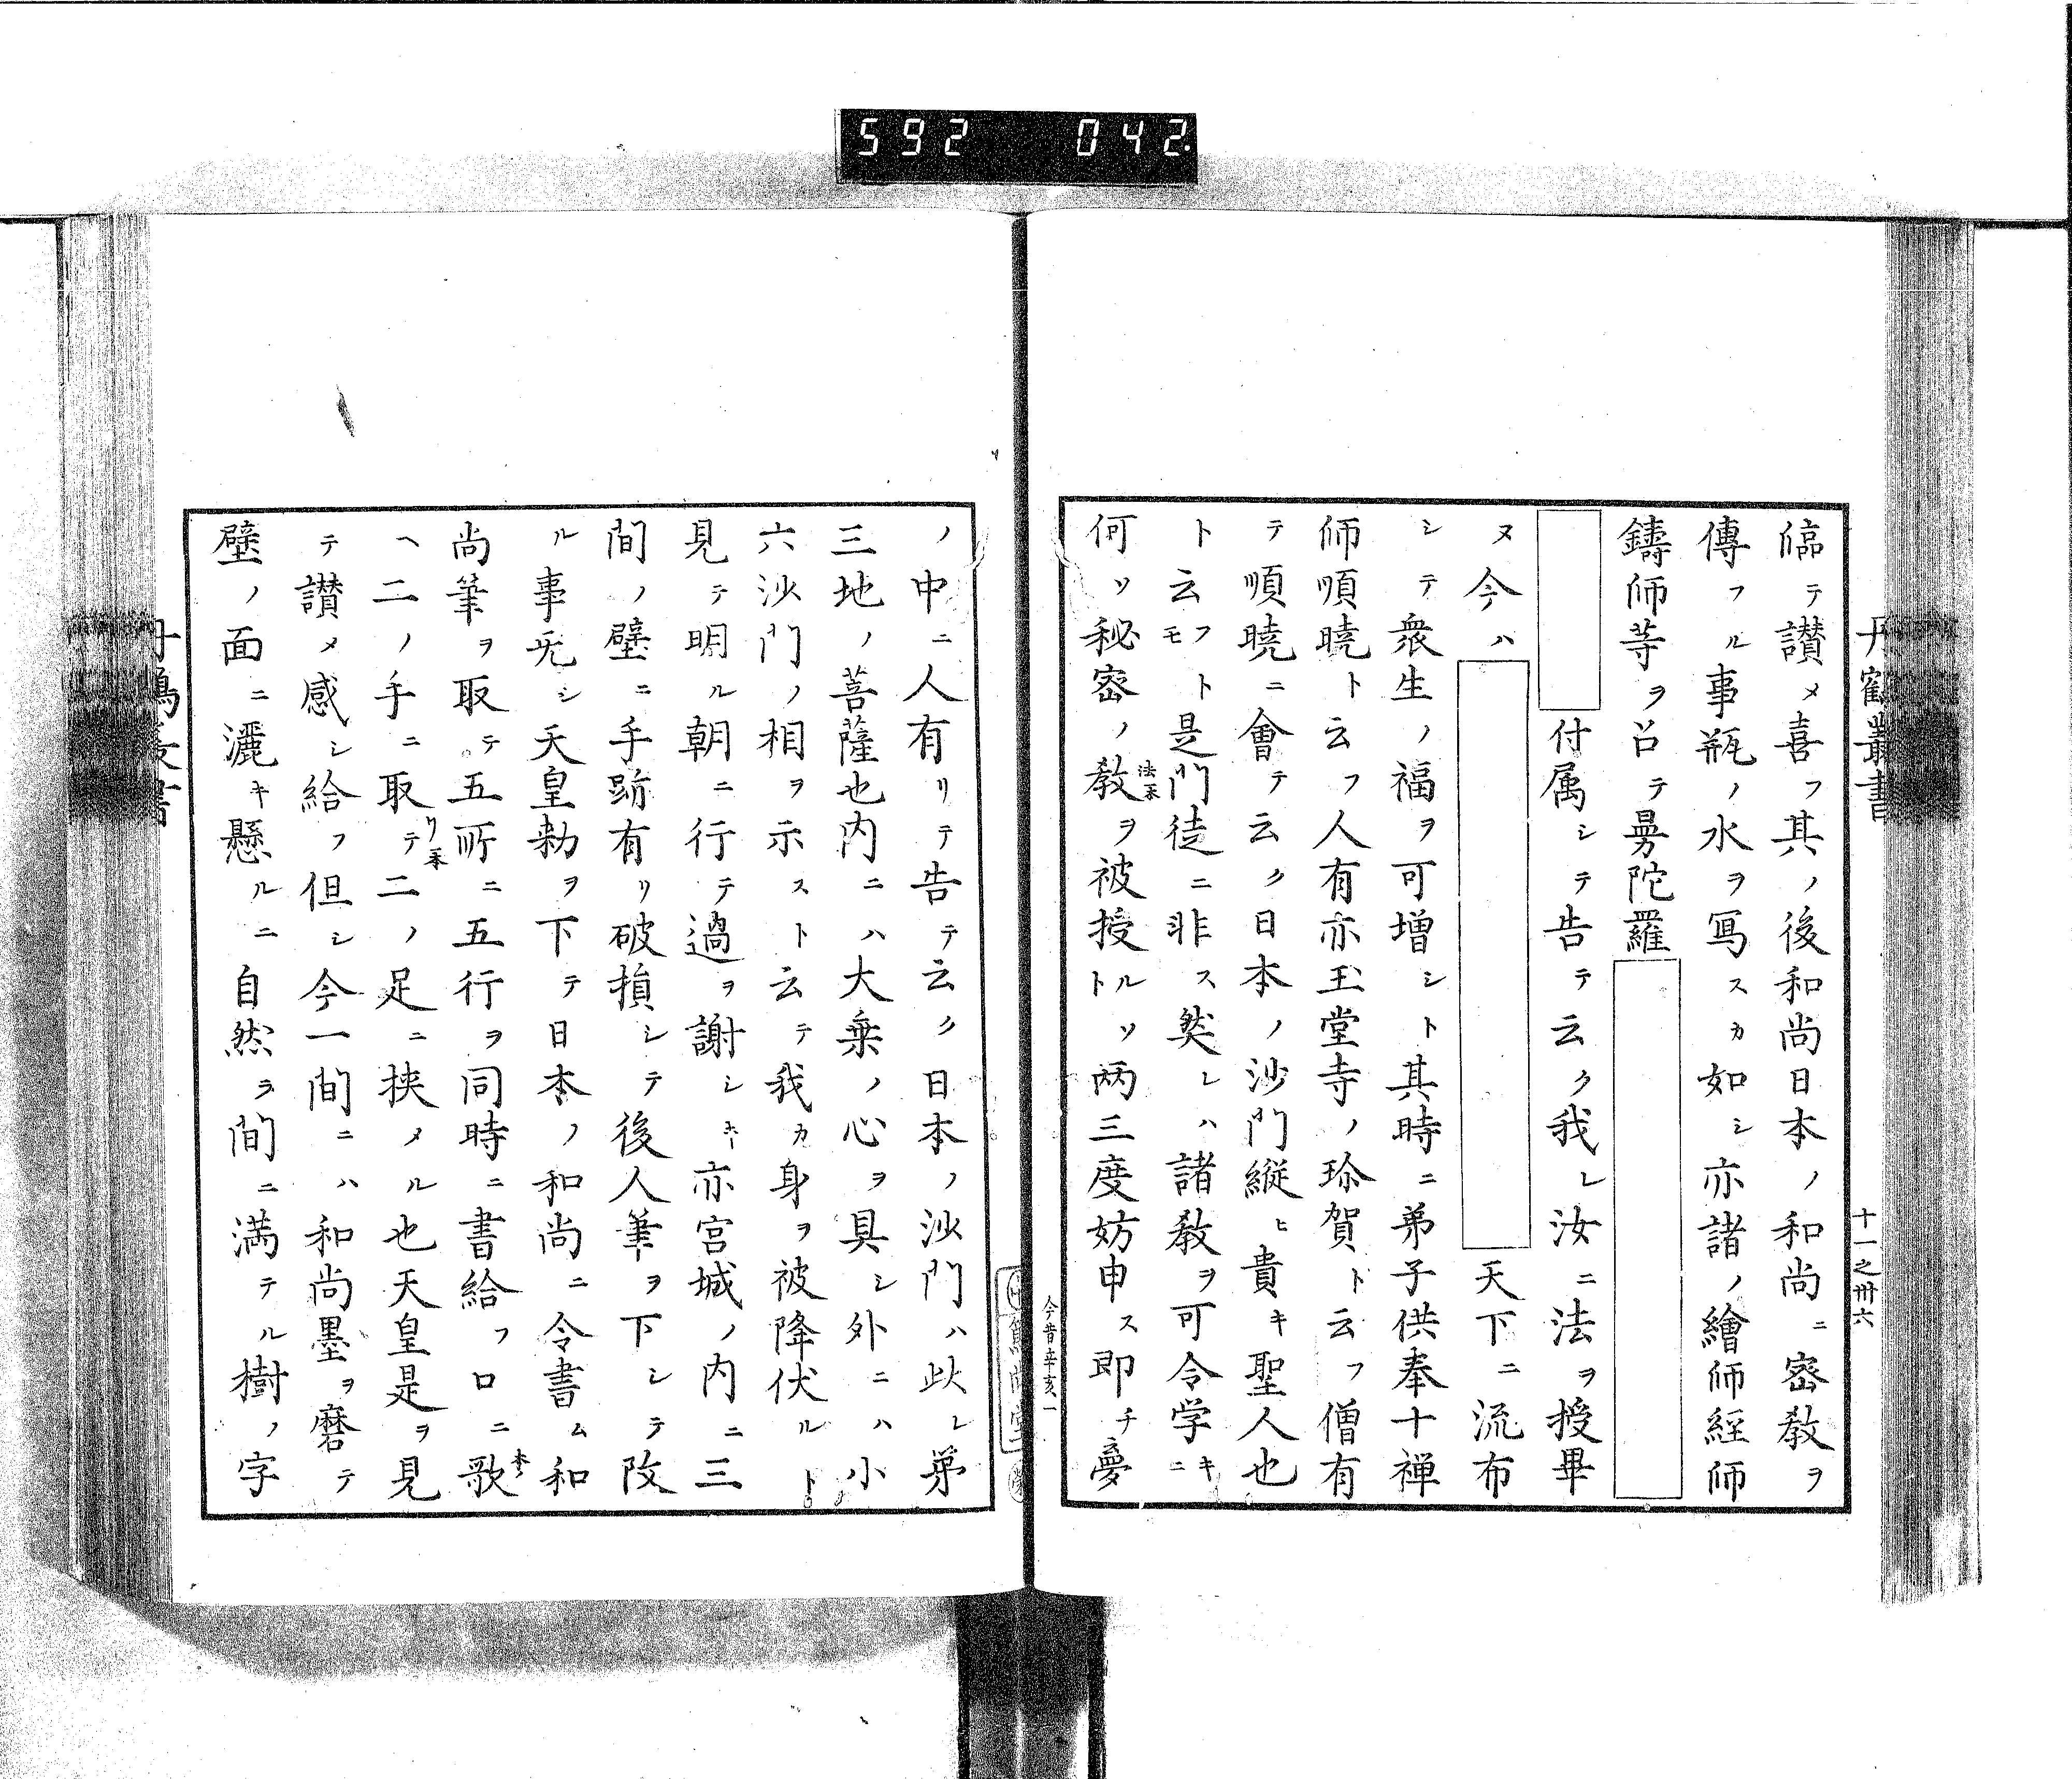 592 042.
丹鶴叢書
十一之卅六
臨テ讃メ喜フ其ノ後和尚日本ノ和尚ニ密教ヲ
傳フル事瓶ノ水ヲ寫スカ如シ亦諸ノ繪師經師
鑄師等ヲ召テ曼陀羅
付属シテ告テ云ク我レ汝ニ法ヲ授畢
ヌ今ハ 天下ニ流布
シテ衆生ノ福ヲ可増シト其時ニ弟子供奉十禅
師順曉ト云フ人有亦玉堂寺ノ珍賀ト云フ僧有
テ順曉ニ會テ云ク日本ノ沙門縦ヒ貴キ聖人也
ト云フトモ是門徒ニ非ス然レハ諸教ヲ可令学キニ
何ソ秘密ノ教法本ヲ被授ルトソ両三度妨申ス即チ夢
今昔辛亥一
ノ中ニ人有リテ告テ云ク日本ノ沙門ハ此レ第
三地ノ菩薩也内ニハ大乗ノ心ヲ具シ外ニハ小
六沙門ノ相ヲ示スト云テ我カ身ヲ被降伏ルト
見テ明ル朝ニ行テ過ヲ謝シキ亦宮城ノ内ニ三
間ノ壁ニ手跡有リ破損シテ後人筆ヲ下シテ改
ル事无シ天皇勅ヲ下テ日本ノ和尚ニ令書ム和
尚筆ヲ取テ五所ニ五行ヲ同時ニ書給フ口ニ歌本ノ
ヘ二ノ手ニ取リ本テ二ノ足ニ挟メル也天皇是ヲ見
テ讃メ感シ給フ但シ今一間ニハ和尚墨ヲ磨テ
壁ノ面ニ灑キ懸ルニ自然ラ間ニ満テル樹ノ字